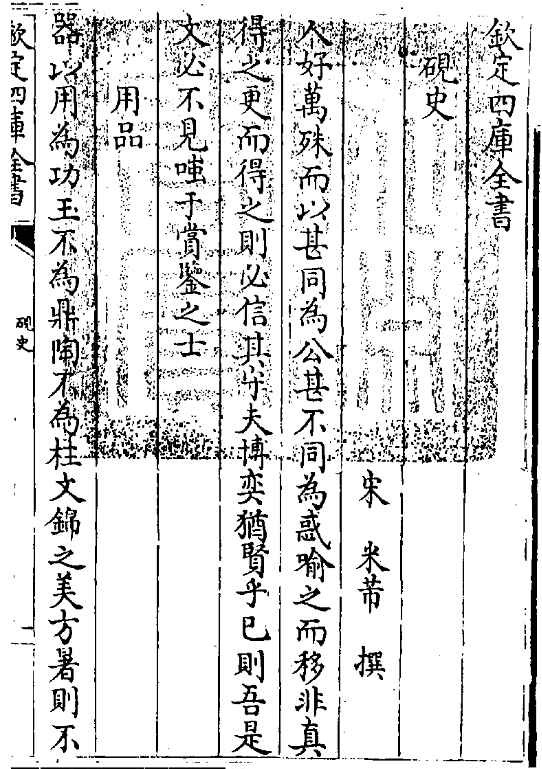 欽定四庫全書
硯史
宋 米芾 撰
人好萬殊而以甚同為公甚不同為惑喻之而移非真
得之更而得之則必信其少夫博奕猶賢乎已則吾是
文必不見嗤于賞鑒之士
用品
器以用為功玉不為鼎陶不為柱文錦之美方暑則不
欽定四庫全書
硯史